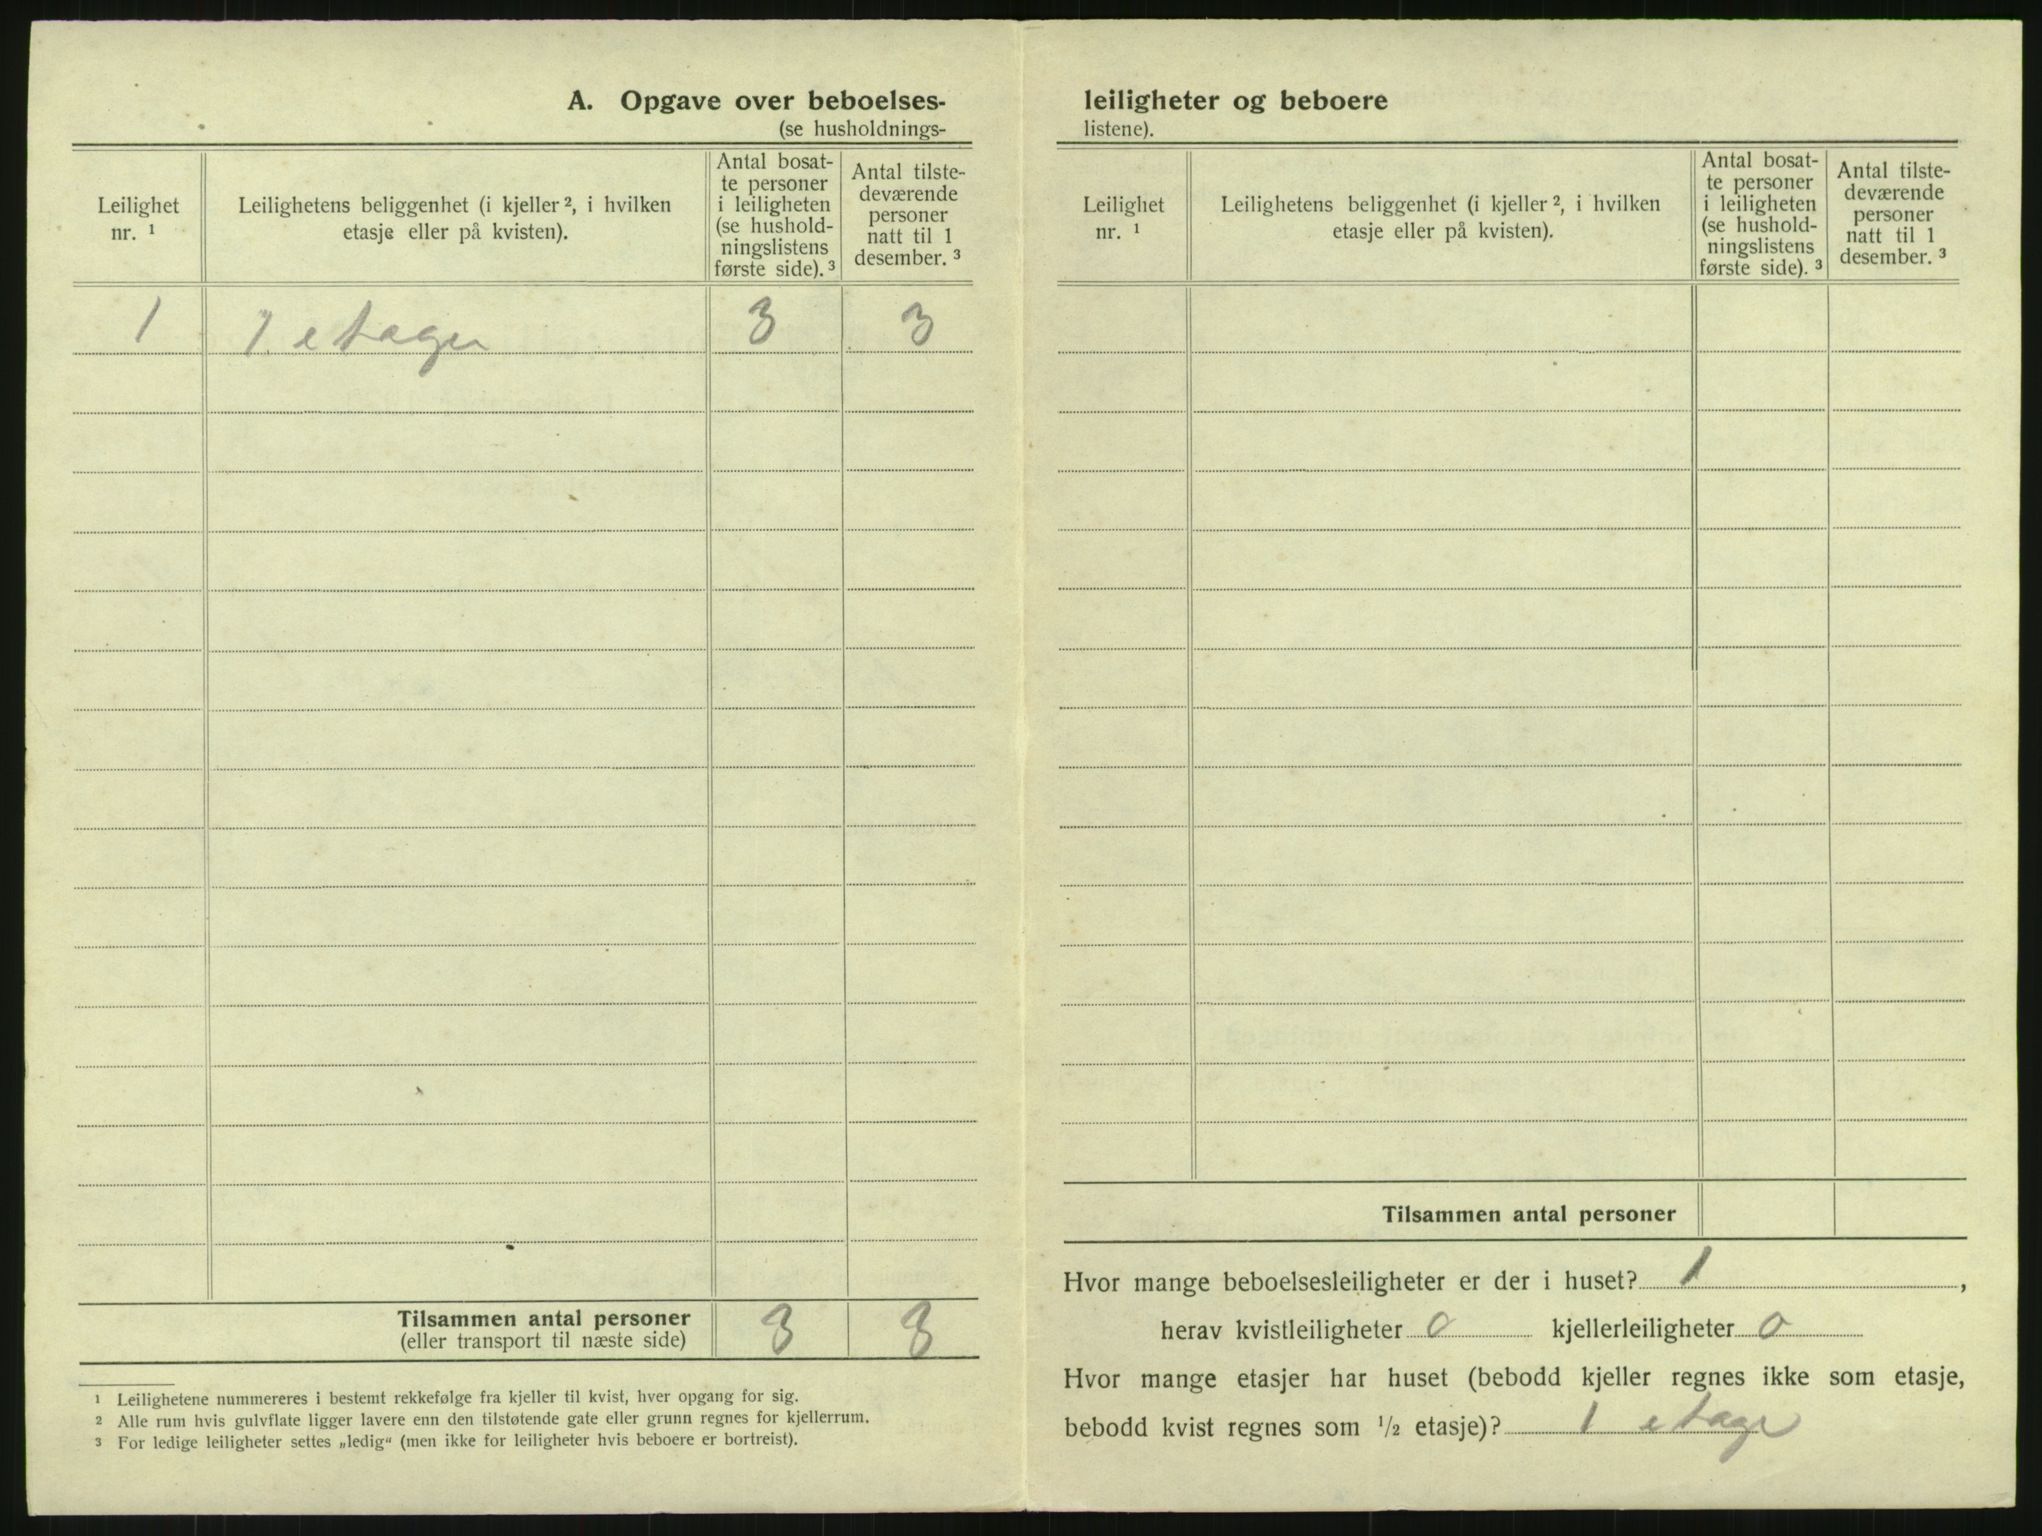 A. Opgave over beboelses-
(se husholdnings-
Leilighet
nr. 1
Leilighetens beliggenhet (i kjeller 2, i hvilken
etasje eller på kvisten).
Antal bosat-
te personer
i leiligheten
(se hushold-
ningslistens
første side). 3
Antal tilste-
deværende
personer
natt til 1
desember. 3
1 1. etagen 3 3
Tilsammen antal personer 3 3
(eller transport til næste side)
1 Leilighetene nummereres i bestemt rekkefølge fra kjeller til kvist, hver opgang for sig.
2 Alle rum hvis gulvflate ligger lavere enn den tilstøtende gate eller grunn regnes for kjellerrum.
3 For ledige leiligheter settes „ledig“ (men ikke for leiligheter hvis beboere er bortreist).
leiligheter og beboere
listene).
Leilighet
nr. 1
Leilighetens beliggenhet (i kjeller 2, i hvilken
etasje eller på kvisten).
Antal bosat-
te personer
i leiligheten
(se hushold-
ningslistens
første side). 3
Antal tilste-
deværende
personer
natt til 1
desember. 3
Tilsammen antal personer
Hvor mange beboelsesleiligheter er der i huset? 1,
herav kvistleiligheter 0 kjellerleiligheter 0
Hvor mange etasjer har huset (bebodd kjeller regnes ikke som etasje,
bebodd kvist regnes som 1/2 etasje)? 1 etage